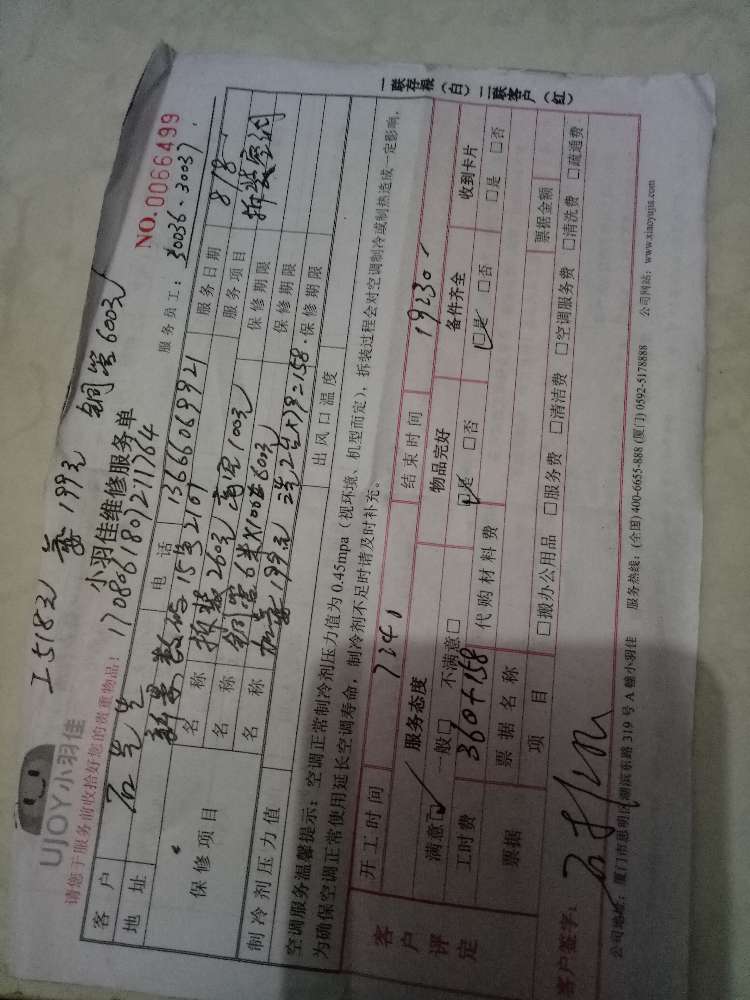 工518元 氟199元 铜管600元
UJOY小羽佳
小羽佳维修服务单
NO.0066499
请您于服务前收拾好您的贵重物品!
17080618072111764
服务员工: 30036、30037
客户
电话 13666069921
服务日期 8/18
地址
15号2107
服务项目 拆装空调
保修项目
名称 拆装260元 高空100元
保修期限
名称 铜管6米X100=600元
保修期限
名称 加氟199元
=158
保修期限
制冷剂压力值
出风口温度
空调服务温馨提示:空调正常制冷剂压力值为0.45mpa(视环境、机型而定),拆装过程会对空调制冷或制热造成一定影响,
为确保空调正常使用延长空调寿命,制冷剂不足时请及时补充。
一联存根(白) 二联客户(红)
客户评定
开工时间
结束时间
服务态度
物品完好
备件齐全
收到卡片
满意□ 一般□ 不满意□
□是 □否
□是 □否
□是 □否
工时费 360+158
代购材料费
票据
票据名称
票据金额
项目
□搬办公用品 □服务费 □清洁费 □空调服务费 □清洗费 □疏通费
客户签字:
公司地址:厦门市思明区湖滨东路319号A幢小羽佳 服务热线:(全国)400-6655-888 (厦门) 0592-5178888 公司网站:www.xiaoyujia.com